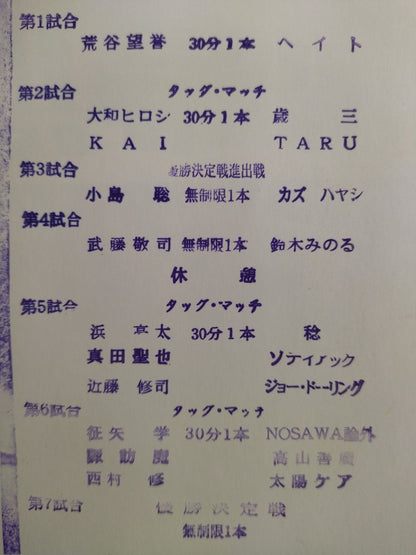 第1試合
荒谷望誉 30分1本 ヘイト
第2試合 タッグ・マッチ
大和ヒロシ 30分1本 歳三
KAI TARU
第3試合 優勝決定戦進出戦
小島聡 無制限1本 カズハヤシ
第4試合
武藤敬司 無制限1本 鈴木みのる
休憩
第5試合 タッグ・マッチ
浜亮太 30分1本 稔
真田聖也
近藤修司 ジョー・ドーリング
第6試合 タッグ・マッチ
征矢学 30分1本 NOSAWA論外
諏訪魔 高山善廣
西村修 太陽ケア
第7試合 優勝決定戦
無制限1本